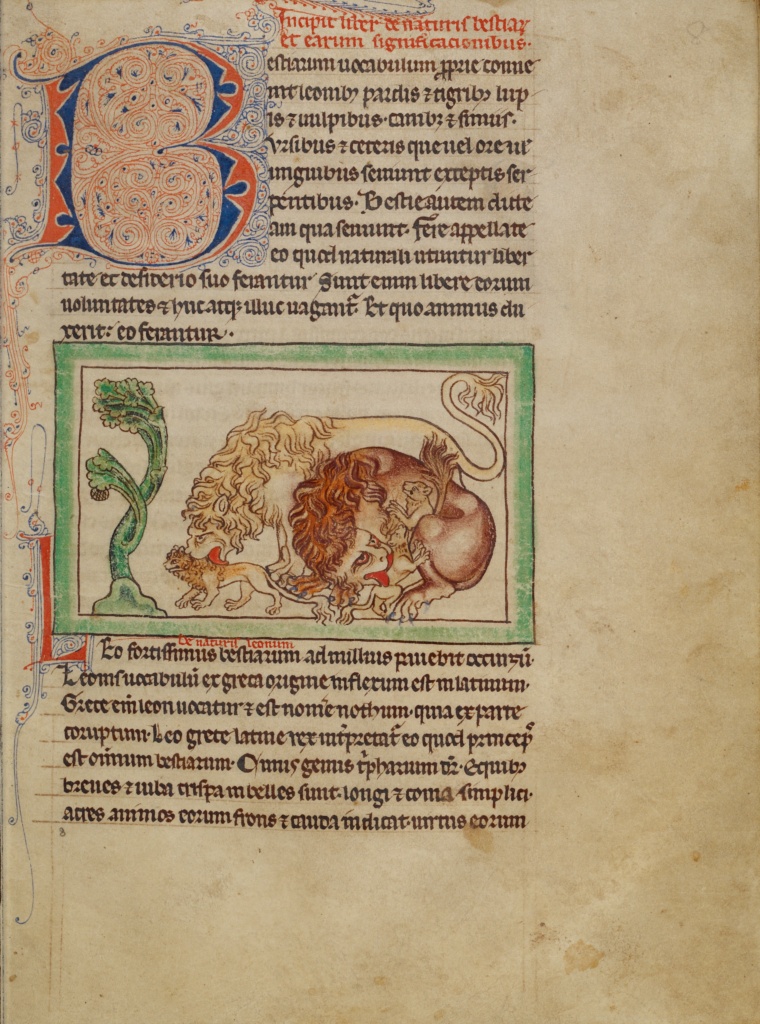 Incipit liber de naturis bestiaꝝ
et earum significacionibus.
Bestiarum uocabulum ꝓprie conue
nit leonibꝫ pardis ⁊ tigribꝫ lup
is ⁊ uulpibus. canibꝫ ⁊ simiis.
Vrsibus ⁊ ceteris que uel ore uel
unguibus seuiunt exceptis ser
pentibus. Bestie autem dicte
a ui qua seuiunt. Fere appellate
eo quod naturali utuntur liber
tate et desiderio suo ferantur Sunt enim libere eorum
uoluntates ⁊ huc atqꝫ illuc uagant̄. Et quo animus du
xerit: eo ferantur.
De naturis leonum
Leo fortissimus bestiarum ad nullius pauebit occursū.
Leonis uocabulū ex greca origine inflexum est in latinum.
Grece eni᷑ leon uocatur ⁊ est nomen nothum. quia ex parte
coruptum. Leo grece latine rex int̄pretat̄ eo quod princeps
est omnium bestiarum. Cuius genus t̄pharium dr̄. E quibꝫ
breues ⁊ iuba crispa inbelles sunt. longi ⁊ coma simplici.
acres animos eorum frons ⁊ cauda indicat. uirtus eorum